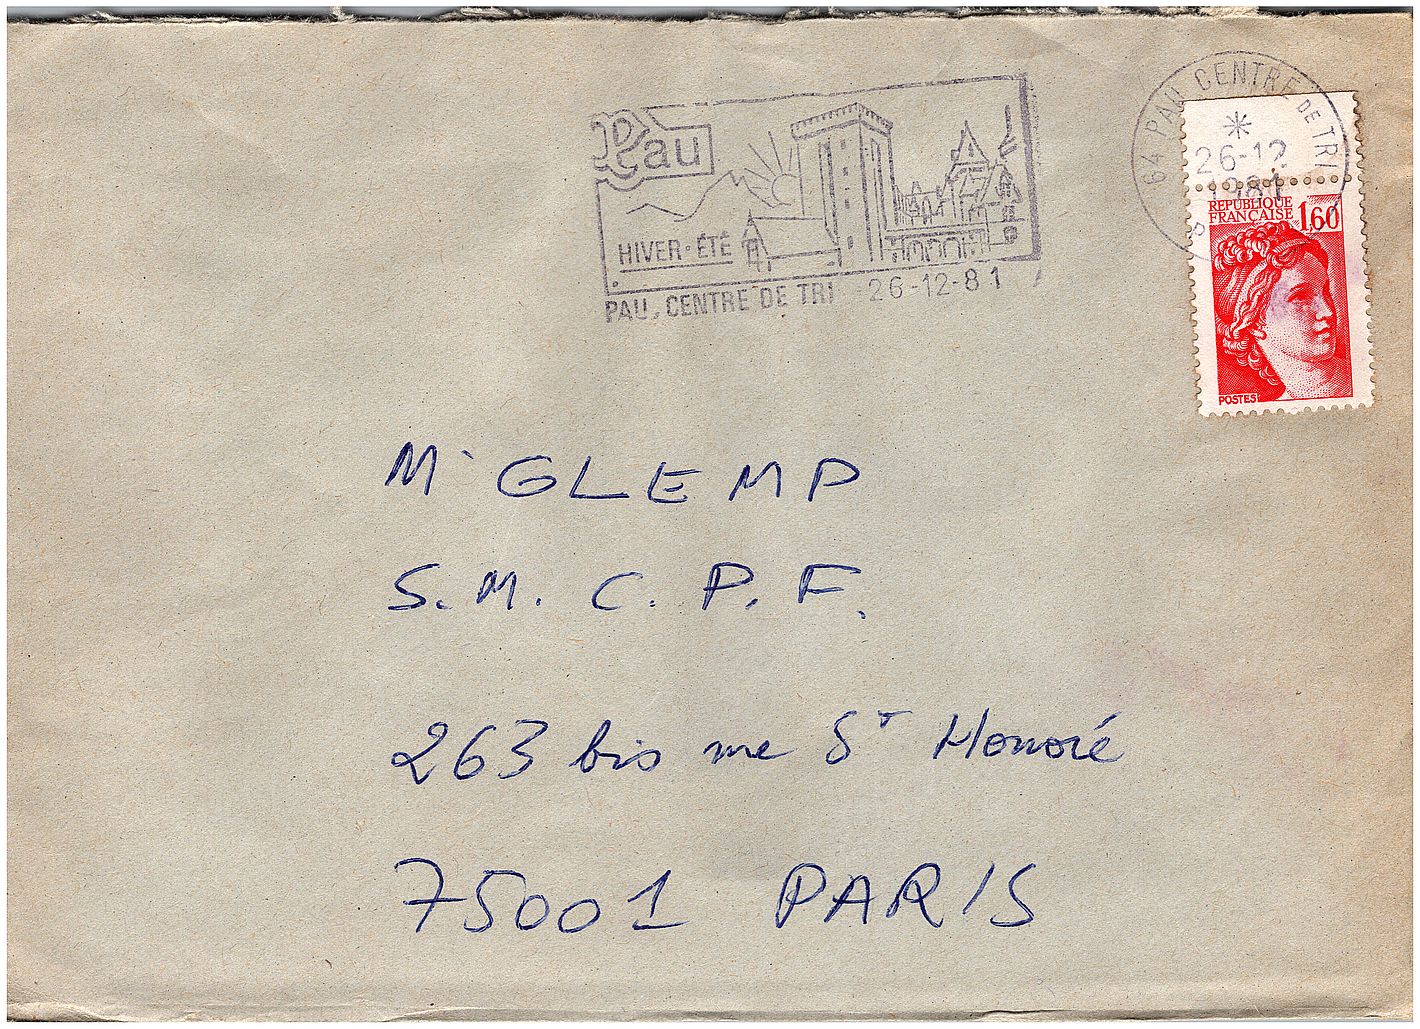 Pau
HIVER·ÉTÉ
PAU, CENTRE DE TRI 26-12-81
64 PAU CENTRE DE TRI
26-12
1981
REPUBLIQUE
FRANÇAISE 1,60
POSTES
Mr GLEMP
S. M. C. P. F.
263 bis rue St Honoré
75001 PARIS